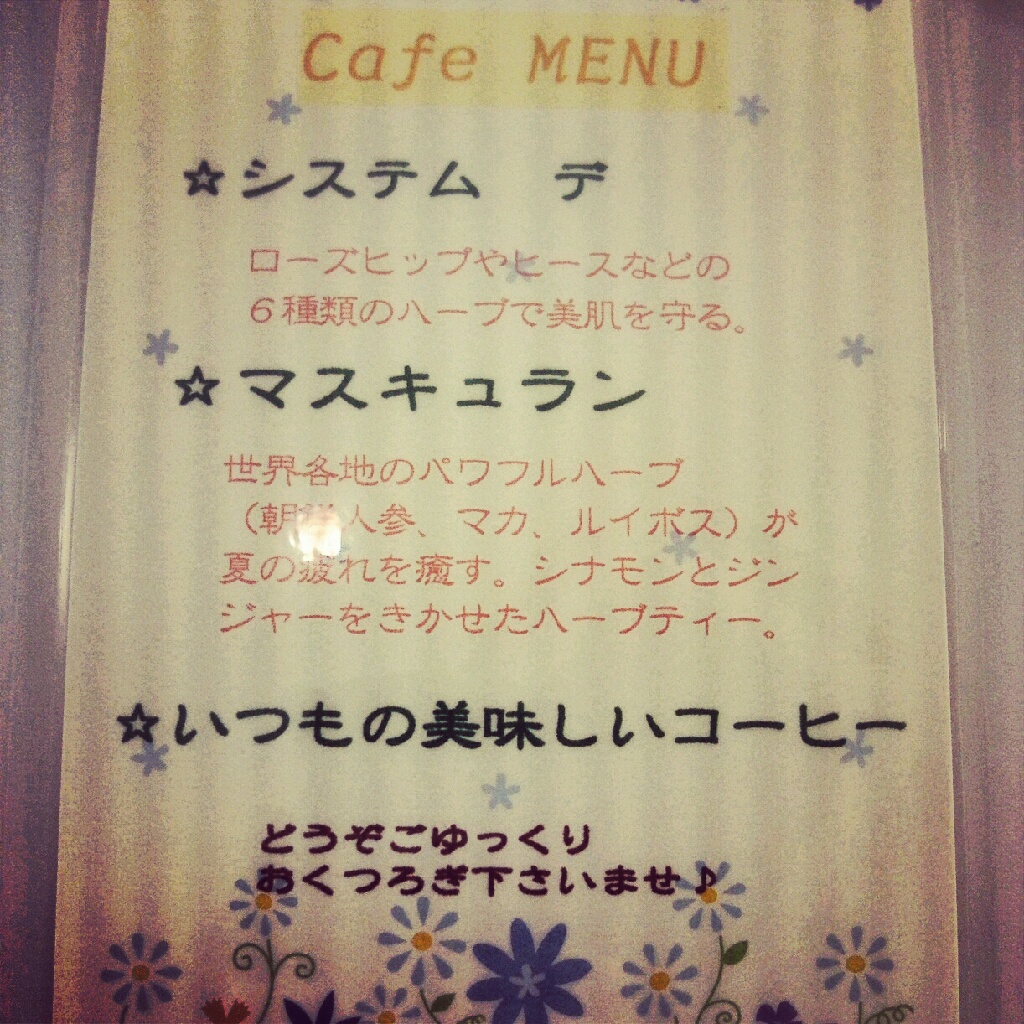 Cafe MENU
☆システム　デ
ローズヒップやヒースなどの
６種類のハーブで美肌を守る。
☆マスキュラン
世界各地のパワフルハーブ
（朝鮮人参、マカ、ルイボス）が
夏の疲れを癒す。シナモンとジン
ジャーをきかせたハーブティー。
☆いつもの美味しいコーヒー
どうぞごゆっくり
おくつろぎ下さいませ♪